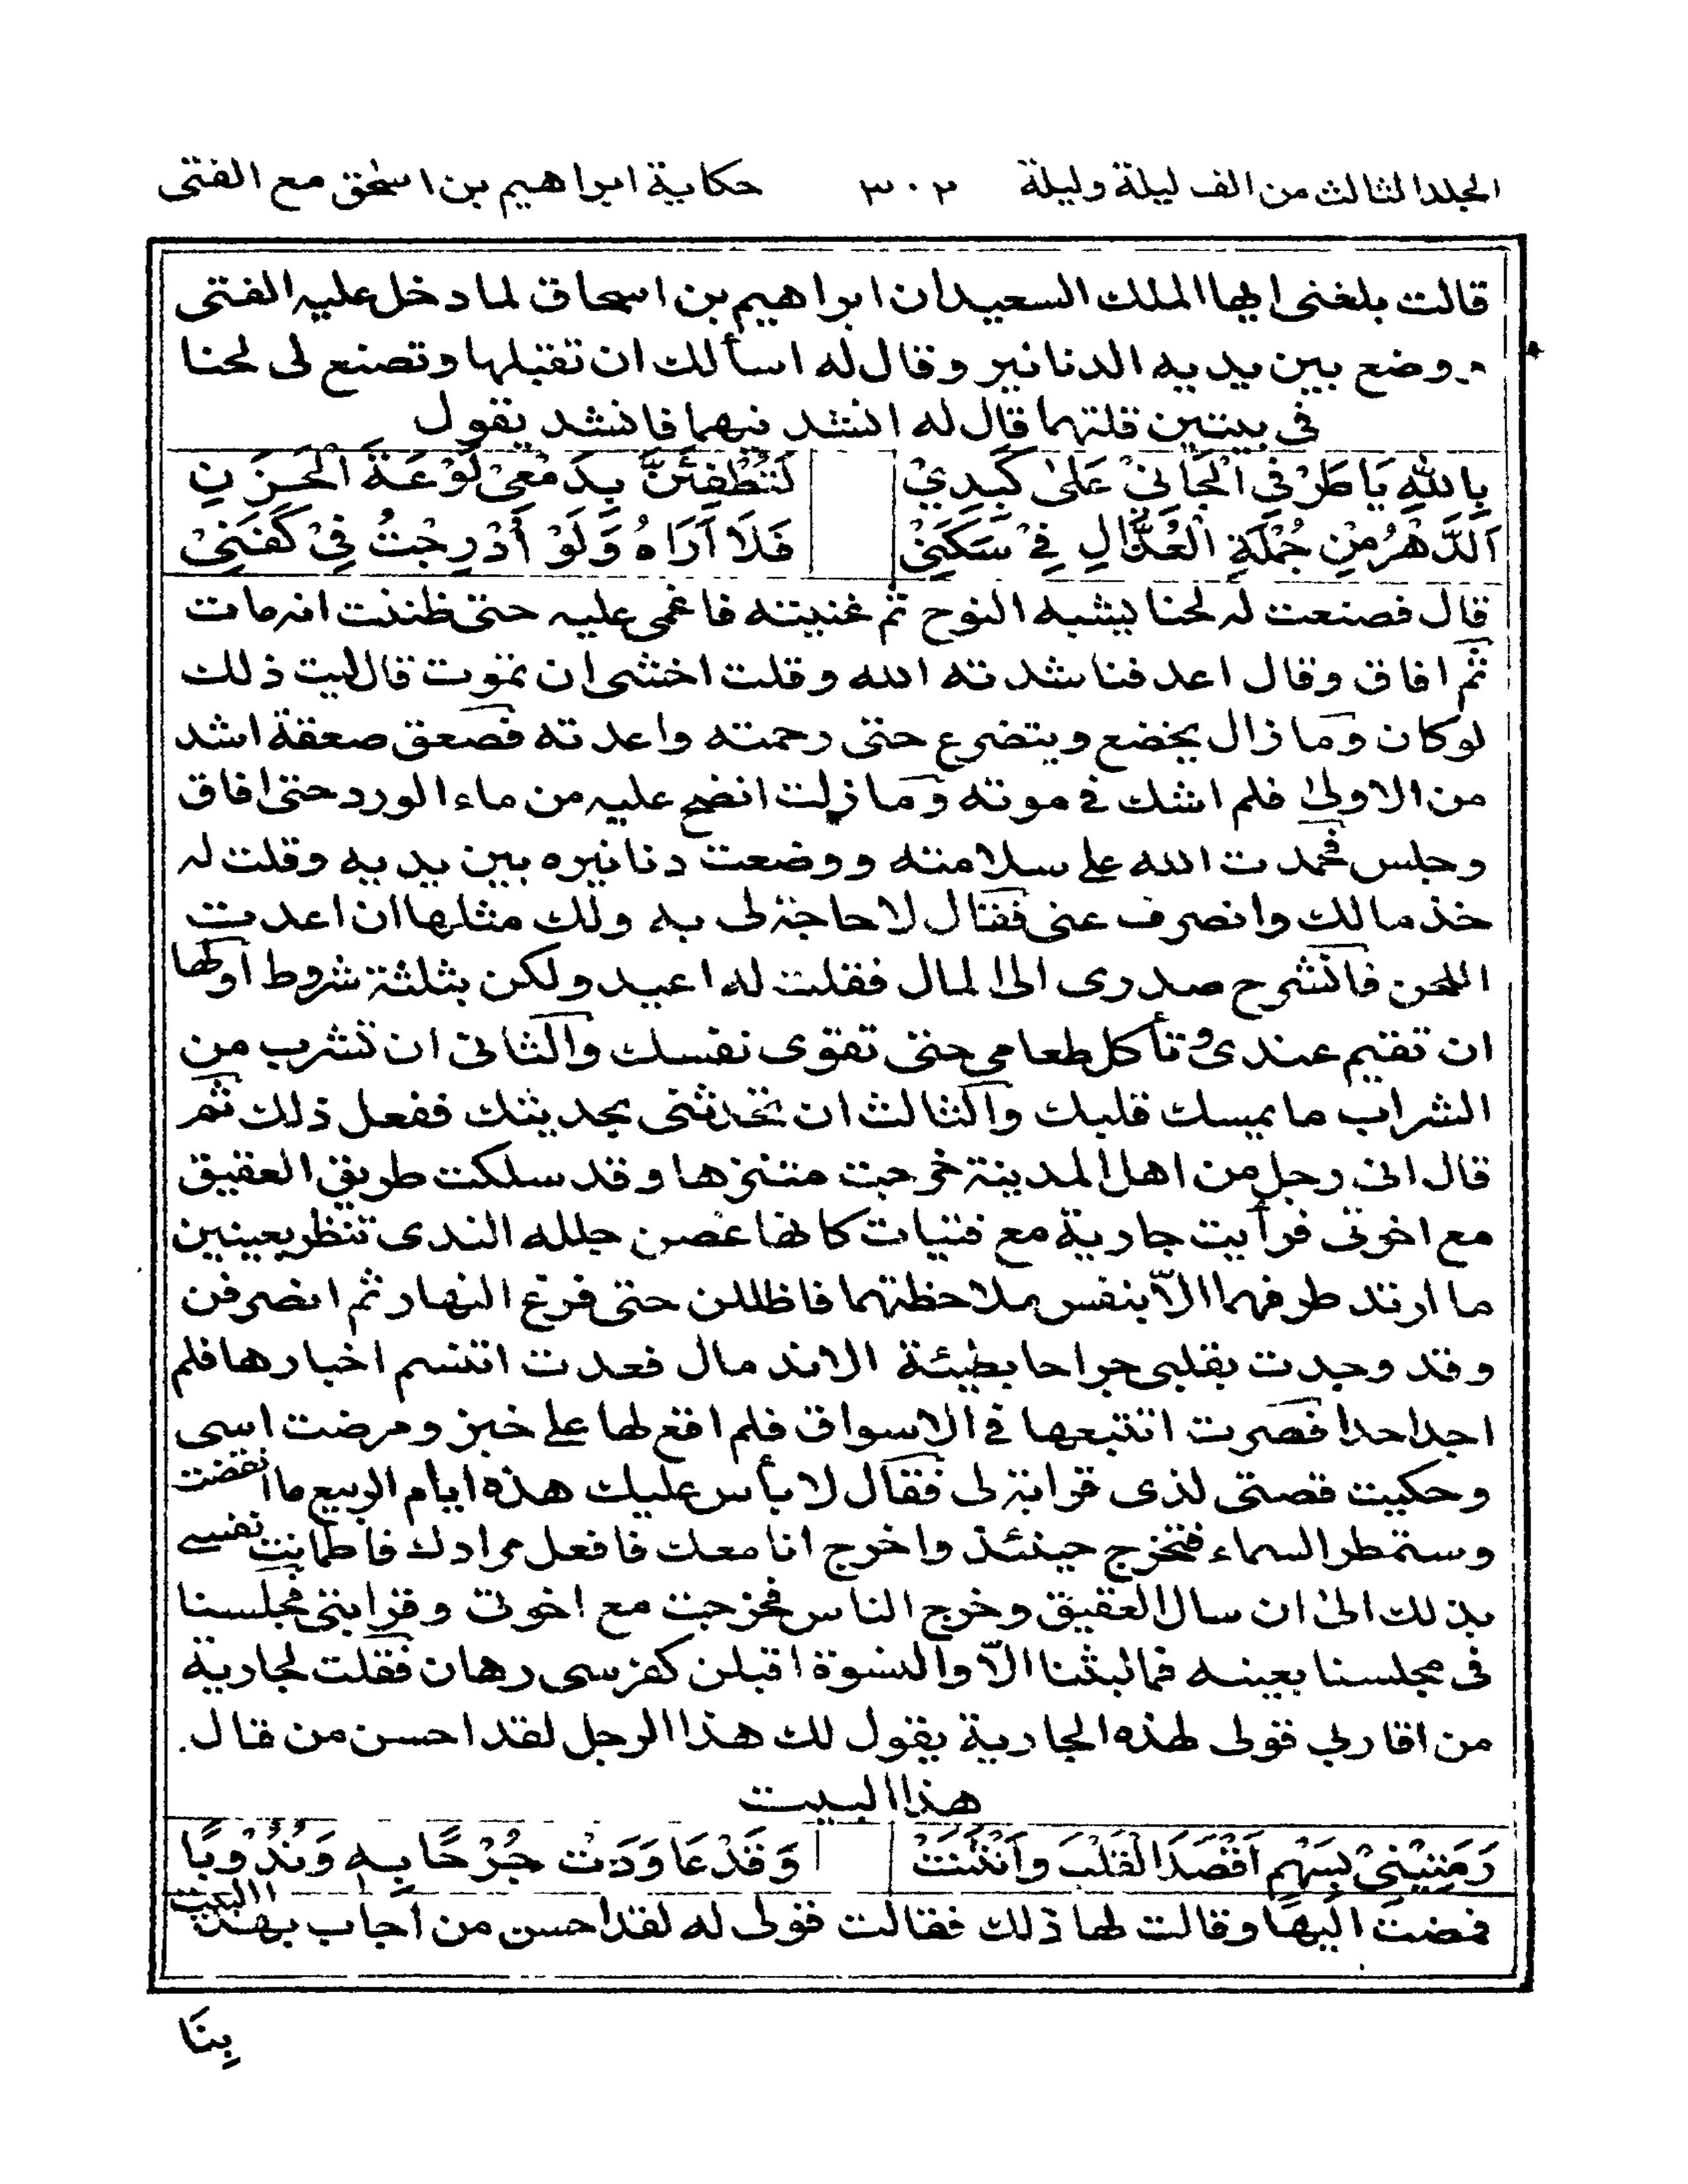 الجلد الثالث من الف ليلة وليلة ٣٠٢ حكاية ابراهيم بن اسحق مع الفتى
قالت بلغنى ايها الملك السعيد ان ابراهيم بن اسحاق لما دخل عليه الفتى
وضع بين يديه الدنانير وقال له اسألك ان تقبلها وتصنع لى لحنا
فى بيتين قلتهما قال له انشدنيهما فانشد يقول
بِاللهِ يَا طَرْفِي الْجَانِيْ عَلىٰ كَبِدِيْ لَتُطْفِئَنَّ بِدَمْعِىْ لَوْعَةَ الْحَزَنِ
اَلدَّهْرُ مِنْ جُمْلَةِ الْعُذَّالِ فِيْ سَكَنِىْ فَلَا اَرَاهُ وَلَوْ أُدْرِجْتُ فِىْ كَفَنِىْ
قال فصنعت له لحنا يشبه النوح ثم غنيته فاغمى عليه حتى ظننت انه مات
ثم افاق وقال اعد فناشدته الله وقلت اخشى ان تموت قال ليت ذلك
لو كان وما زال يخضع ويتضرع حتى رحمته واعدته فصعق صعقة اشد
من الاولىٰ فلم اشك فى موته وما زلت انضح عليه من ماء الورد حتى افاق
وجلس فحمدت الله على سلامته ووضعت دنانيره بين يديه وقلت له
خذ مالك وانصرف عنى فقال لا حاجة لى به ولك مثلها ان اعدت
اللحن فانشرح صدرى الى المال فقلت له اعيد ولكن بثلثة شروط اولها
ان تقيم عندى وتأكل طعامى حتى تقوى نفسك والثانى ان تشرب من
الشراب ما يمسك قلبك والثالث ان تحدثنى بحديثك ففعل ذلك ثم
قال انى رجل من اهل المدينة خرجت متنزها وقد سلكت طريق العقيق
مع اخوتى فرأيت جارية مع فتيات كانها غصن جلله الندى تنظر بعينين
ما ارتد طرفهما الّا بنفس ملاحظتهما فاظللن حتى فرغ النهار ثم انصرفن
وقد وجدت بقلبى جراحا بطيئة الاندمال فعدت اتنسم اخبارها فلم
اجد احدا فصرت اتتبعها فى الاسواق فلم اقع لها على خبر ومرضت اسى
وحكيت قصتى لذى قرابة لى فقال لا بأس عليك هذه ايام الربيع ما انقضت
وستمطر السماء فتخرج حينئذ واخرج انا معك فافعل مرادك فاطمأنت نفسى
بذلك الىٰ ان سال العقيق وخرج الناس فخرجت مع اخوتى وقرابتى فجلسنا
فى مجلسنا بعينه فما لبثنا الّا والنسوة اقبلن كفرسى رهان فقلت لجارية
من اقاربي قولى لهذه الجارية يقول لك هذا الرجل لقد احسن من قال
هذا البيت
رَمَتْنِيْ بِسَهْمٍ اَقْصَدَ الْقَلْبَ وَانْثَنَتْ وَقَدْ عَاوَدَتْ جُرْحًا بِهِ وَنُدُوْبًا
فمضت اليها وقالت لها ذلك فقالت قولى له لقد احسن من اجاب بهذا البيت
بِنَا